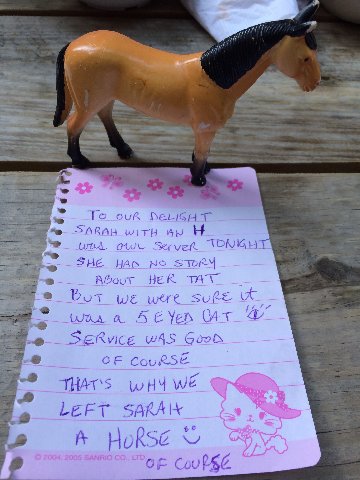 TO OUR DELIGHT
SARAH WITH AN H
WAS OUR SERVER TONIGHT
SHE HAD NO STORY
ABOUT HER TAT
BUT WE WERE SURE IT
WAS A 5 EYED CAT
SERVICE WAS GOOD
OF COURSE
THAT'S WHY WE
LEFT SARAH
A HORSE
OF COURSE
© 2004, 2005 SANRIO CO., LTD.